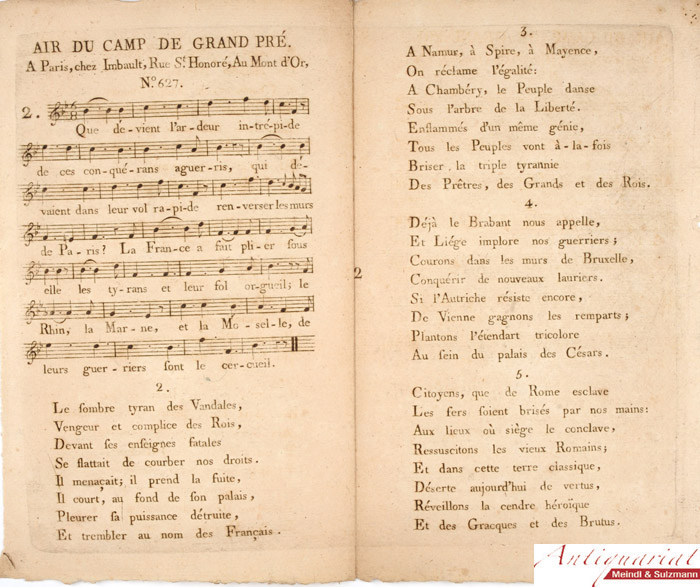 AIR DU CAMP DE GRAND PRÉ.
A Paris, chez Imbault, Rue St. Honoré, Au Mont d'Or,
No. 627.
2.
Que de-vient l'ar-deur in-tré-pi-de
de ces con-qué-rans aguer-ris, qui de-
vaient dans leur vol ra-pi-de ren-verser les murs
de Pa-ris? La Fran-ce a fait pli-er sous
elle les ty-rans et leur fol or-gueil; le
Rhin, la Mar-ne, et la Mo-sel-le, de
leurs guer-riers sont le cer-cueil.
2.
Le sombre tyran des Vandales,
Vengeur et complice des Rois,
Devant ses enseignes fatales
Se flattait de courber nos droits.
Il menaçait; il prend la fuite,
Il court, au fond de son palais,
Pleurer sa puissance détruite,
Et trembler au nom des Français.
2
3.
A Namur, à Spire, à Mayence,
On réclame l'égalité:
A Chambéry, le Peuple danse
Sous l'arbre de la Liberté.
Enflammés d'un même génie,
Tous les Peuples vont à-la-fois
Briser la triple tyrannie
Des Prêtres, des Grands et des Rois.
4.
Déjà le Brabant nous appelle,
Et Liége implore nos guerriers;
Courons dans les murs de Bruxelle,
Conquérir de nouveaux lauriers.
Si l'Autriche résiste encore,
De Vienne gagnons les remparts;
Plantons l'étendart tricolore
Au sein du palais des Césars.
5.
Citoyens, que de Rome esclave
Les fers soient brisés par nos mains:
Aux lieux où siège le conclave,
Ressuscitons les vieux Romains;
Et dans cette terre classique,
Déserte aujourd'hui de vertus,
Réveillons la cendre héroïque
Et des Gracques et des Brutus.
Antiquariat
Meindl & Sulzmann